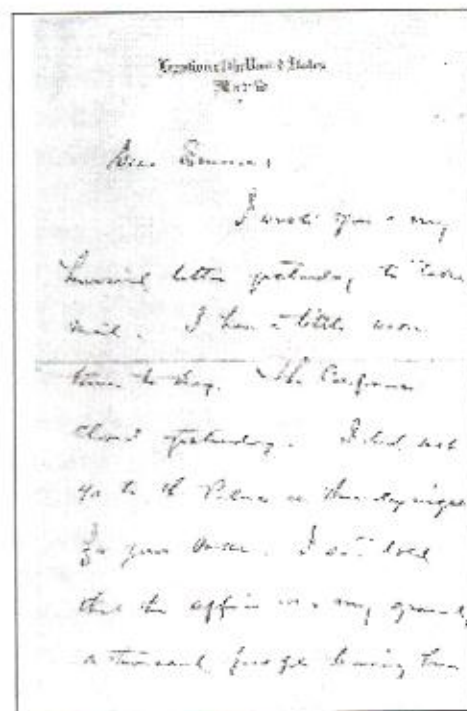 Legation of the United States
Madrid
Dear Emma,
I wrote you a very
hurried letter yesterday to
mail. I have a little more
time to day. The Congress
closed yesterday. I did not
go to the Palace on Thursday night
I am told
that the affair was a very grand,
a thousand people having been